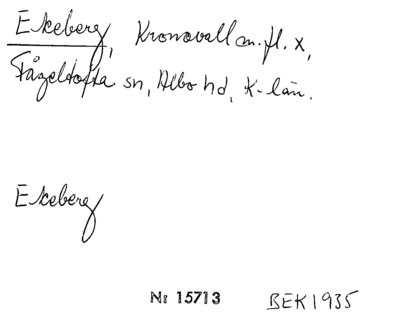 Ekeberg, Kronovall m.fl. x,
Fågeltofta sn, Albo hd, K-län.
Ekeberg
Nr 15713 BEK1935